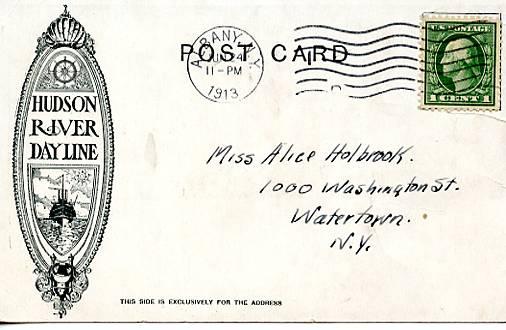 HUDSON
RIVER
DAY LINE
POST CARD
ALBANY, N.Y.
11-PM
1913
U.S. POSTAGE
1 CENT 1
Miss Alice Holbrook.
1000 Washington St.
Watertown.
N.Y.
THIS SIDE IS EXCLUSIVELY FOR THE ADDRESS